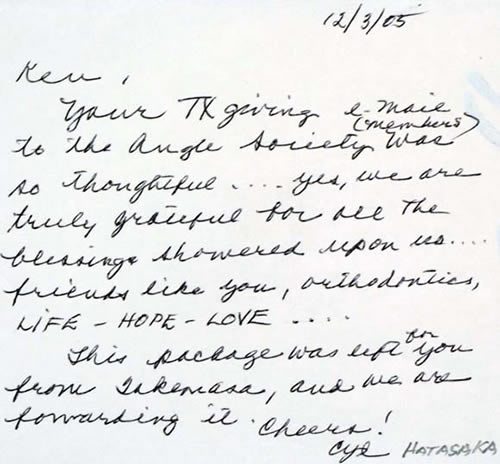 12/3/05
Ken,
Your TXgiving e-Mail
(members)
to the Angle Society was
so thoughtful .... yes, we are
truly grateful for all the
blessings showered upon us....
friends like you, orthodontics,
LIFE - HOPE - LOVE ....
for
This package was left you
from Takemasa, and we are
forwarding it. Cheers!
HATASAKA